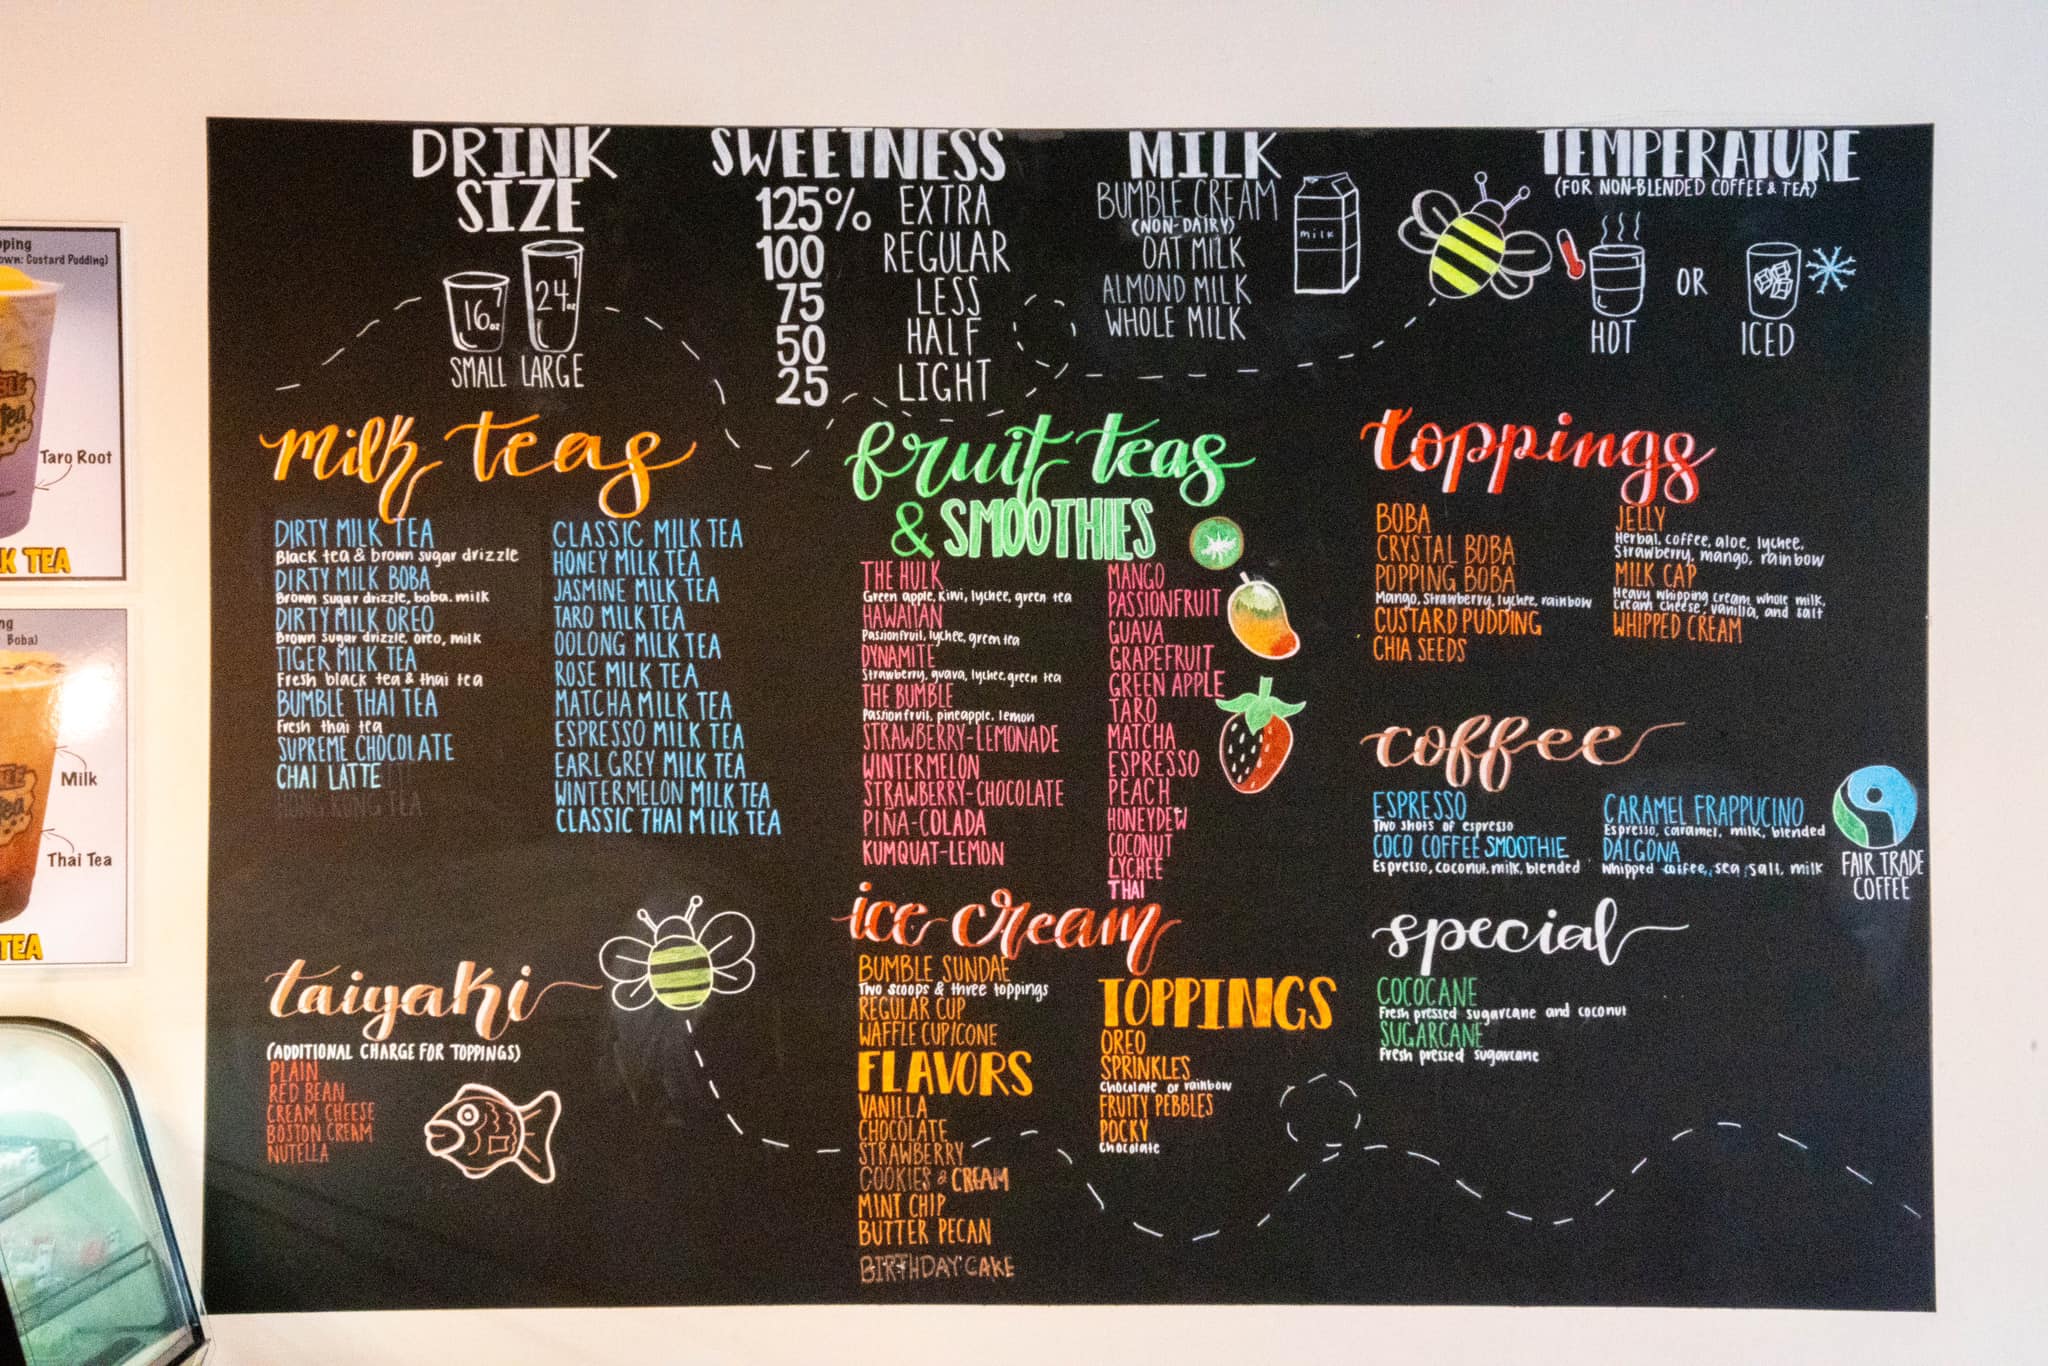 DRINK
SIZE
16oz
24oz
SMALL LARGE
SWEETNESS
125% EXTRA
100 REGULAR
75 LESS
50 HALF
25 LIGHT
MILK
BUMBLE CREAM
(NON-DAIRY)
OAT MILK
ALMOND MILK
WHOLE MILK
milk
TEMPERATURE
(FOR NON-BLENDED COFFEE & TEA)
HOT OR ICED
milk teas
DIRTY MILK TEA
Black tea & brown sugar drizzle
DIRTY MILK BOBA
Brown sugar drizzle, boba, milk
DIRTY MILK OREO
Brown sugar drizzle, oreo, milk
TIGER MILK TEA
Fresh black tea & thai tea
BUMBLE THAI TEA
Fresh thai tea
SUPREME CHOCOLATE
CHAI LATTE
HONG KONG TEA
CLASSIC MILK TEA
HONEY MILK TEA
JASMINE MILK TEA
TARO MILK TEA
OOLONG MILK TEA
ROSE MILK TEA
MATCHA MILK TEA
ESPRESSO MILK TEA
EARL GREY MILK TEA
WINTERMELON MILK TEA
CLASSIC THAI MILK TEA
fruit teas
& SMOOTHIES
THE HULK
Green apple, kiwi, lychee, green tea
HAWAIIAN
Passionfruit, lychee, green tea
DYNAMITE
Strawberry, guava, lychee, green tea
THE BUMBLE
Passionfruit, pineapple, lemon
STRAWBERRY-LEMONADE
WINTERMELON
STRAWBERRY-CHOCOLATE
PIÑA-COLADA
KUMQUAT-LEMON
MANGO
PASSIONFRUIT
GUAVA
GRAPEFRUIT
GREEN APPLE
TARO
MATCHA
ESPRESSO
PEACH
HONEYDEW
COCONUT
LYCHEE
THAI
toppings
BOBA
CRYSTAL BOBA
POPPING BOBA
Mango, strawberry, lychee, rainbow
CUSTARD PUDDING
CHIA SEEDS
JELLY
Herbal, coffee, aloe, lychee,
Strawberry, mango, rainbow
MILK CAP
Heavy whipping cream, whole milk,
cream cheese, vanilla, and salt
WHIPPED CREAM
coffee
ESPRESSO
Two shots of espresso
COCO COFFEE SMOOTHIE
Espresso, coconut, milk, blended
CARAMEL FRAPPUCINO
Espresso, caramel, milk, blended
DALGONA
Whipped coffee, sea salt, milk
FAIR TRADE
COFFEE
taiyaki
(ADDITIONAL CHARGE FOR TOPPINGS)
PLAIN
RED BEAN
CREAM CHEESE
BOSTON CREAM
NUTELLA
ice cream
BUMBLE SUNDAE
Two scoops & three toppings
REGULAR CUP
WAFFLE CUP/CONE
FLAVORS
VANILLA
CHOCOLATE
STRAWBERRY
COOKIES & CREAM
MINT CHIP
BUTTER PECAN
BIRTHDAY CAKE
TOPPINGS
OREO
SPRINKLES
Chocolate or rainbow
FRUITY PEBBLES
POCKY
Chocolate
special
COCOCANE
Fresh pressed sugarcane and coconut
SUGARCANE
Fresh pressed sugarcane
Custard Pudding)
Taro Root
K TEA
Boba)
Milk
Thai Tea
TEA